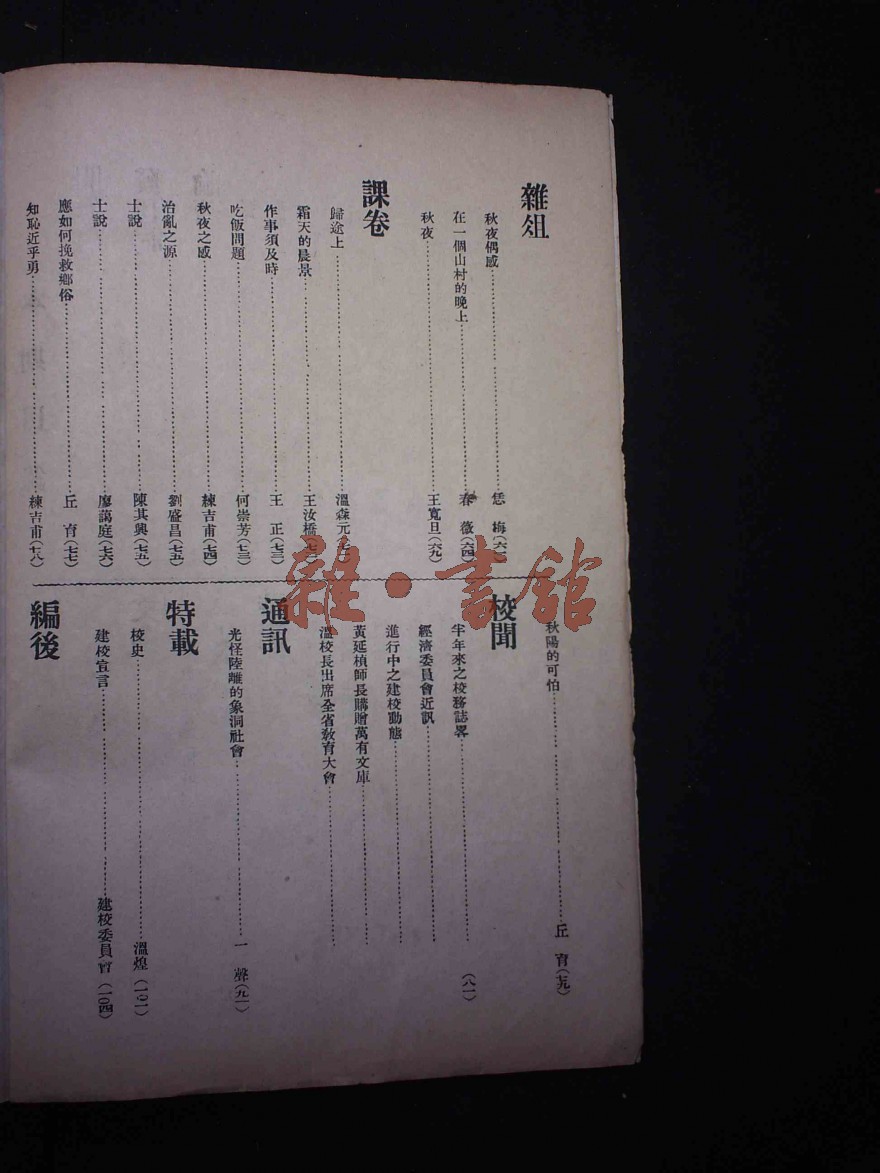 雜俎
秋夜偶感 恁 梅(六
在一個山村的晚上 春 薇(六四)
秋夜 王寬旦(六九)
課卷
歸途上 溫森元(七
霜天的晨景 王汝橋(七
作事須及時 王 正(七三)
吃飯問題 何崇芳(七三)
秋夜之感 練吉甫(七四)
治亂之源 劉盛昌(七五)
士說 陳其興(七五)
士說 廖藹庭(七六)
應如何挽救鄉俗 丘 育(七七)
知恥近乎勇 練吉甫(七八)
秋陽的可怕 丘 育(七九)
校聞
半年來之校務誌畧 (八一)
經濟委員會近訊
進行中之建校動態
黃延楨師長購贈萬有文庫
溫校長出席全省教育大會
通訊
光怪陸離的象洞社會 一 聲(九一)
特載
校史 溫煌(一〇一)
建校宣言 建校委員會(一〇四)
編後
雜·書館